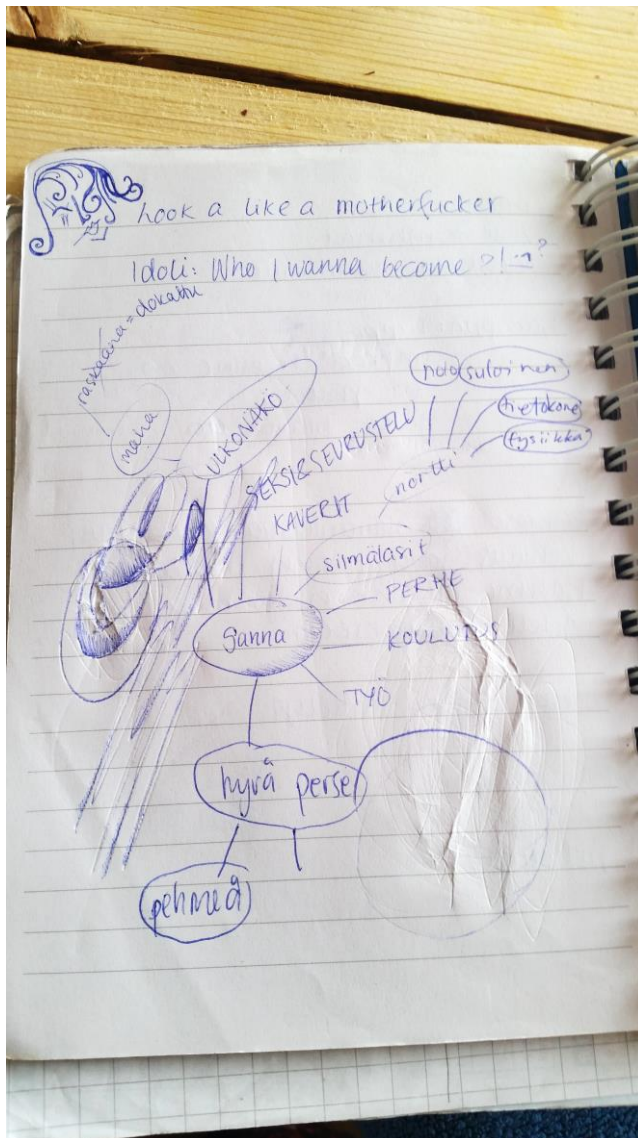 Look a like a motherfucker
Idoli: Who I wanna become
raskaana = dokattu
maha
ULKONÄKÖ
SEKSI & SEURUSTELU
KAVERIT
nolo
suloinen
tietokone
fysiikka
nortti
silmälasit
PERHE
Sanna
KOULUTUS
TYÖ
hyvä perse
pehmeä